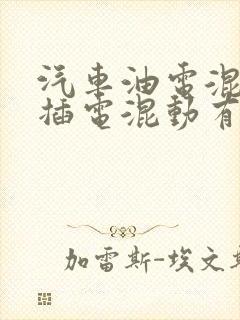 汽車油電混
插電混動有
加雷斯-埃文斯